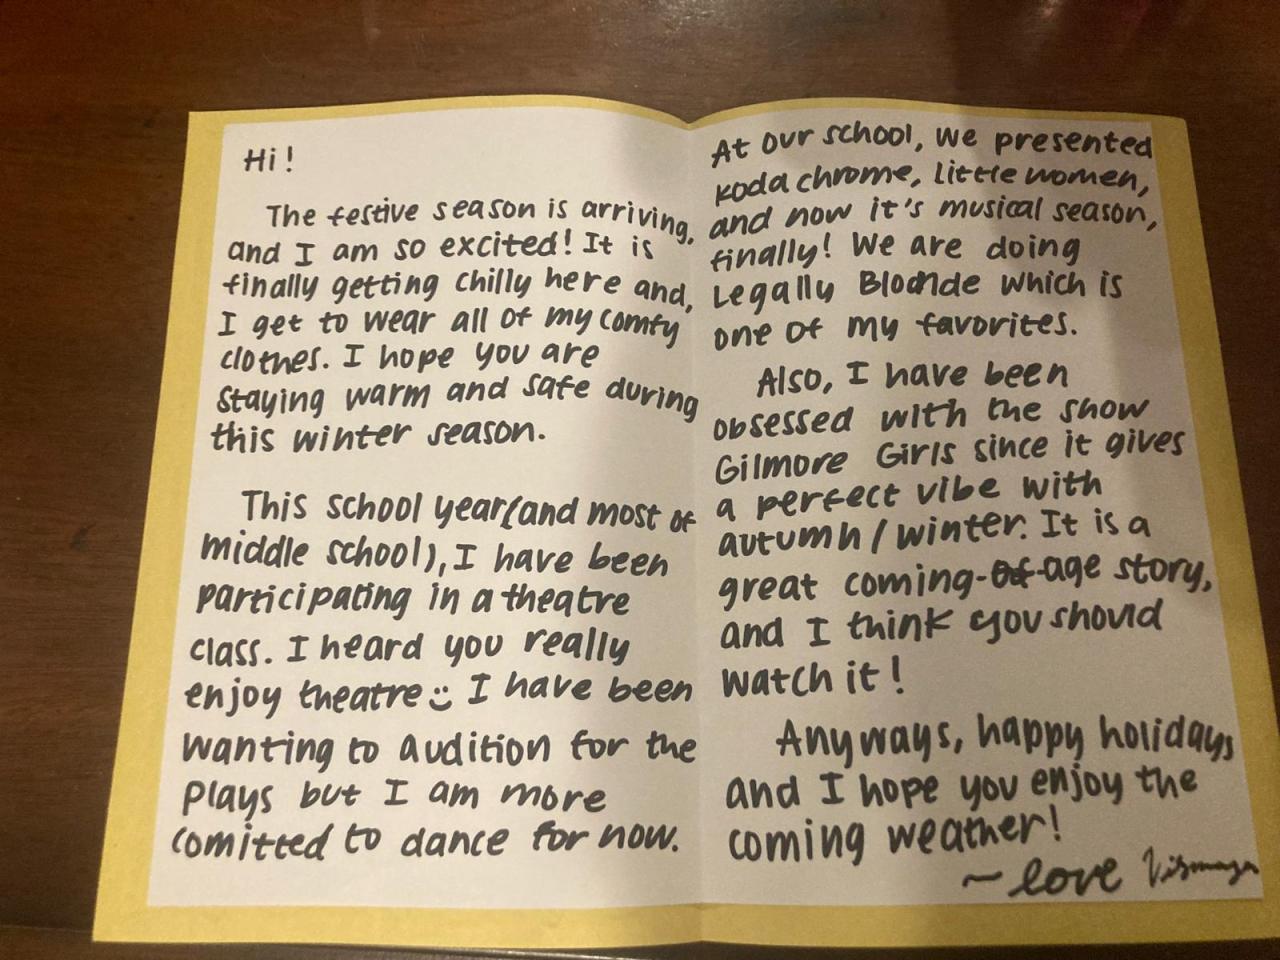 Hi!
The festive season is arriving,
and I am so excited! It is
finally getting chilly here and,
I get to wear all of my comfy
clothes. I hope you are
staying warm and safe during
this winter season.
This school year (and most of
middle school), I have been
participating in a theatre
class. I heard you really
enjoy theatre :) I have been
wanting to audition for the
plays but I am more
comitted to dance for now.
At our school, we presented
koda chrome, little women,
and now it's musical season,
finally! We are doing
Legally Blonde which is
one of my favorites.
Also, I have been
obsessed with the show
Gilmore Girls since it gives
a perfect vibe with
autumn/winter. It is a
great coming-of-age story,
and I think you should
watch it!
Anyways, happy holidays
and I hope you enjoy the
coming weather!
~ love Vismaya